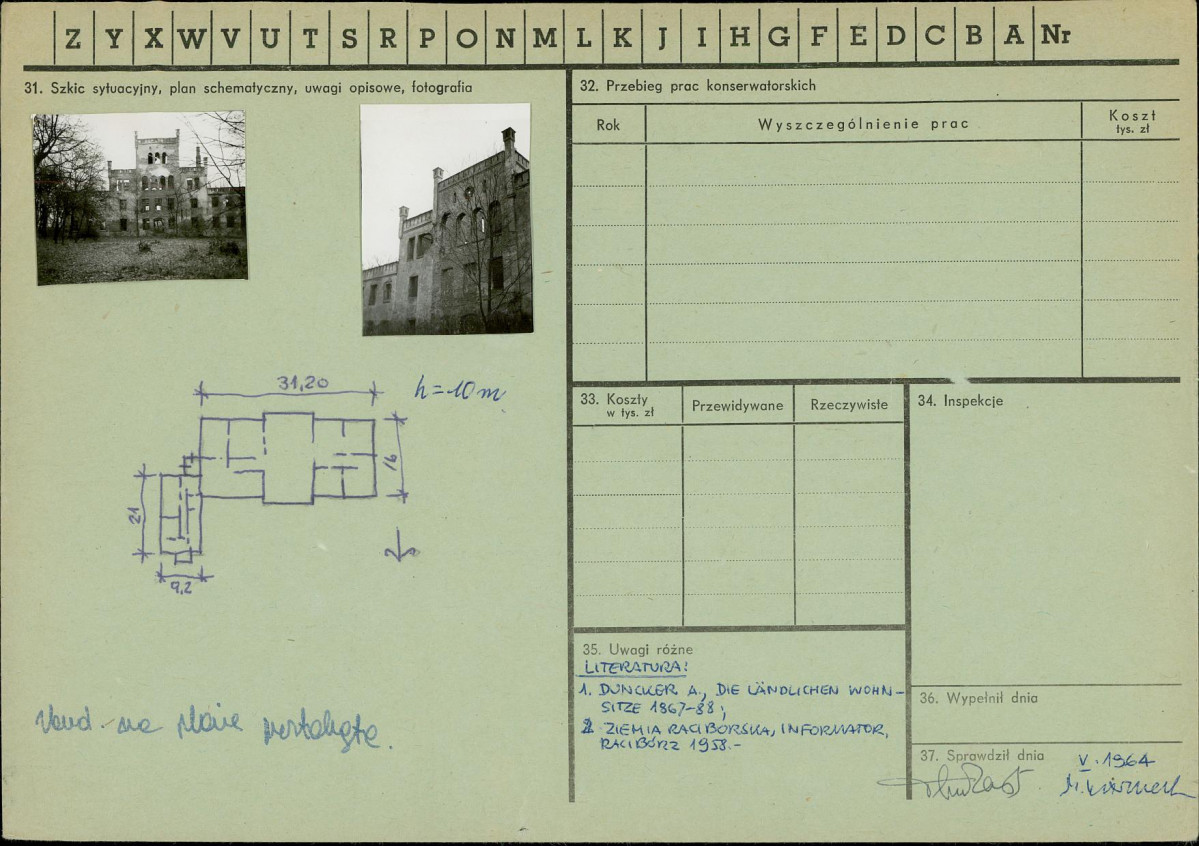 Z Y X W V U T S R P O N M L K J I H G F E D C B A Nr
31. Szkic sytuacyjny, plan schematyczny, uwagi opisowe, fotografia
31,20
h=10 m
16
21
9,2
na planie
32. Przebieg prac konserwatorskich
Rok
Wyszczególnienie prac
Koszt
tys. zł
33. Koszty
w tys. zł
Przewidywane
Rzeczywiste
34. Inspekcje
35. Uwagi różne
LITERATURA:
1. DUNCKER A., DIE LÄNDLICHEN WOHN-
SITZE 1867-88;
2. ZIEMIA RACIBORSKA, INFORMATOR,
RACIBÓRZ 1958.-
36. Wypełnił dnia
37. Sprawdził dnia
V.1964